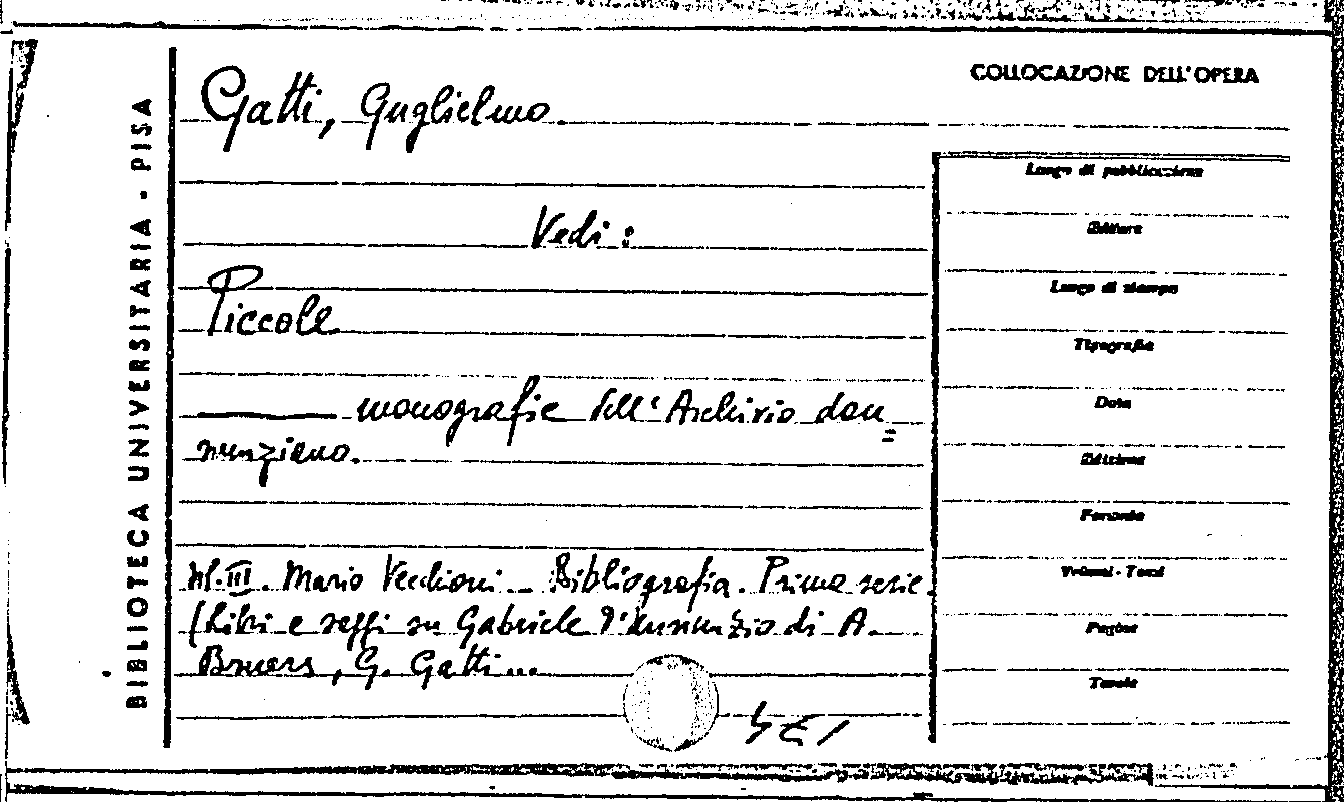 COLLOCAZIONE DELL'OPERA
BIBLIOTECA UNIVERSITARIA - PISA
Gatti, Guglielmo.
Vedi:
Piccole
monografie dell'Archivio dan=
nunziano.
vol. III. Mario Vecchioni. Bibliografia. Prima serie.
(Libri e saggi su Gabriele D'Annunzio di A.
Bruers, G. Gatti...
Luogo di pubblicazione
Editore
Luogo di stampa
Tipografia
Data
Edizione
Formato
Volumi - Tomi
Pagine
Tavole